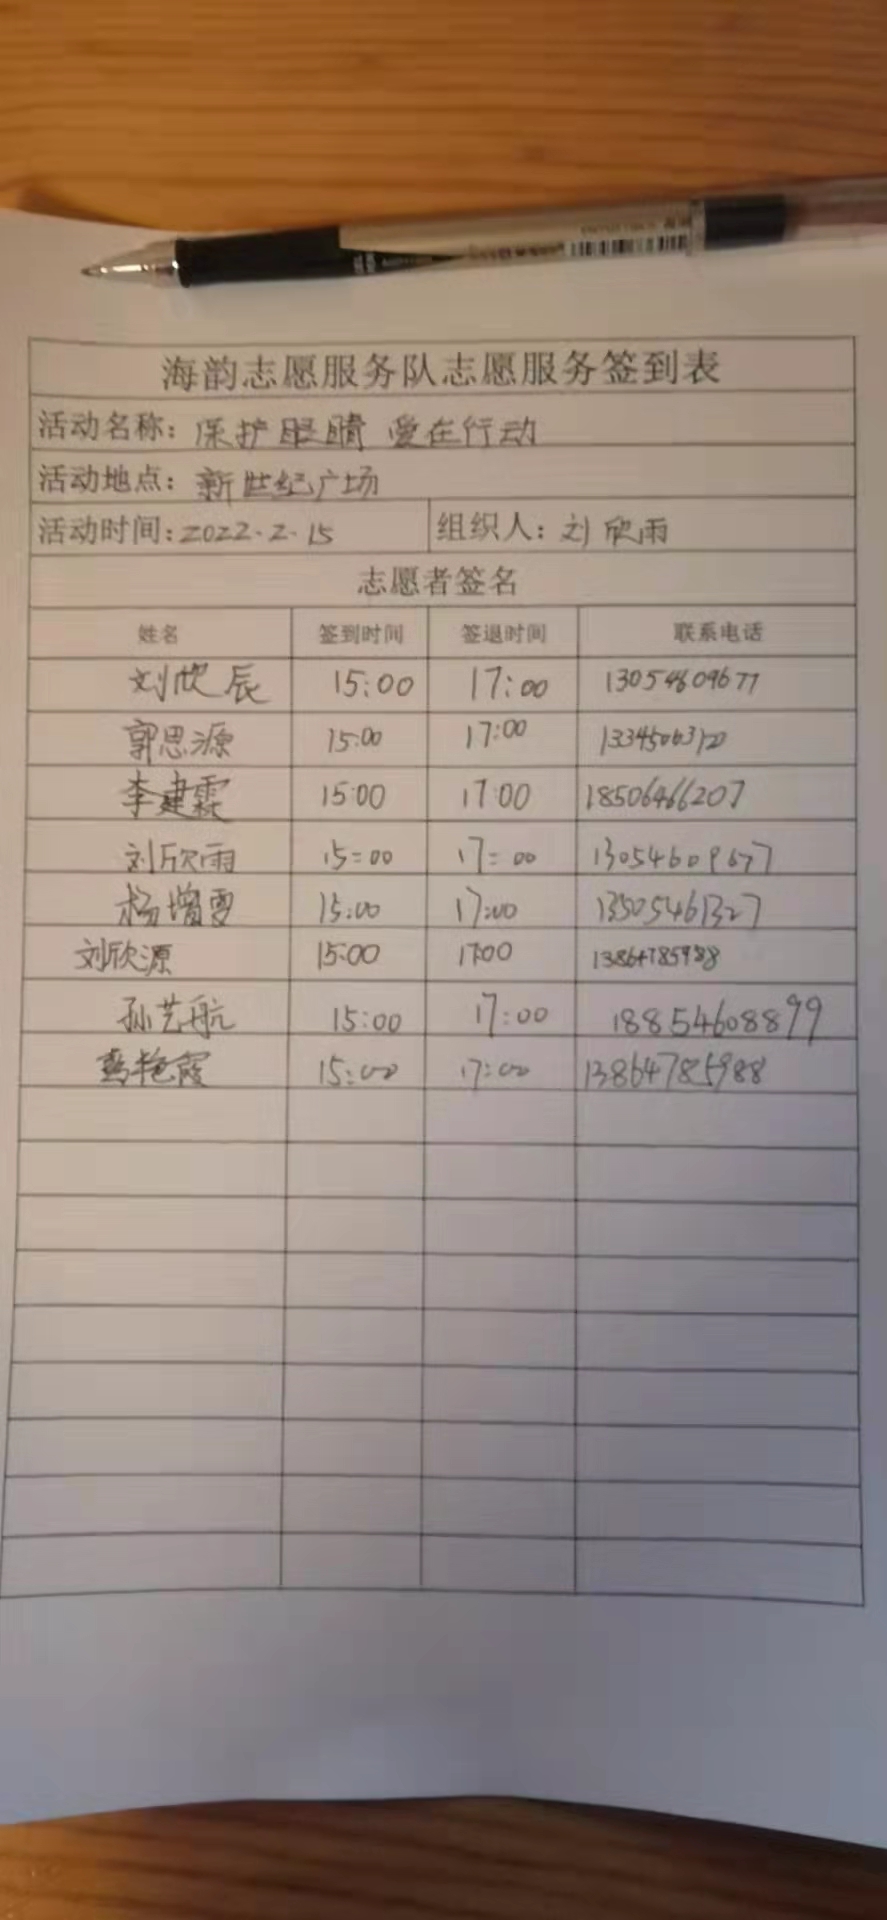 海韵志愿服务队志愿服务签到表
活动名称：保护眼睛 爱在行动
活动地点：新世纪广场
活动时间：2022.2.15 组织人：刘欣雨
志愿者签名
姓名 签到时间 签退时间 联系电话
刘欣辰 15:00 17:00 13054609677
郭思源 15:00 17:00
李建霖 15:00 17:00 18506466207
刘欣雨 15:00 17:00 13054609677
杨增雪 15:00 17:00 13505461327
刘欣源 15:00 17:00 13864785988
孙艺航 15:00 17:00 18854608899
艳霞 15:00 17:00 13864785988